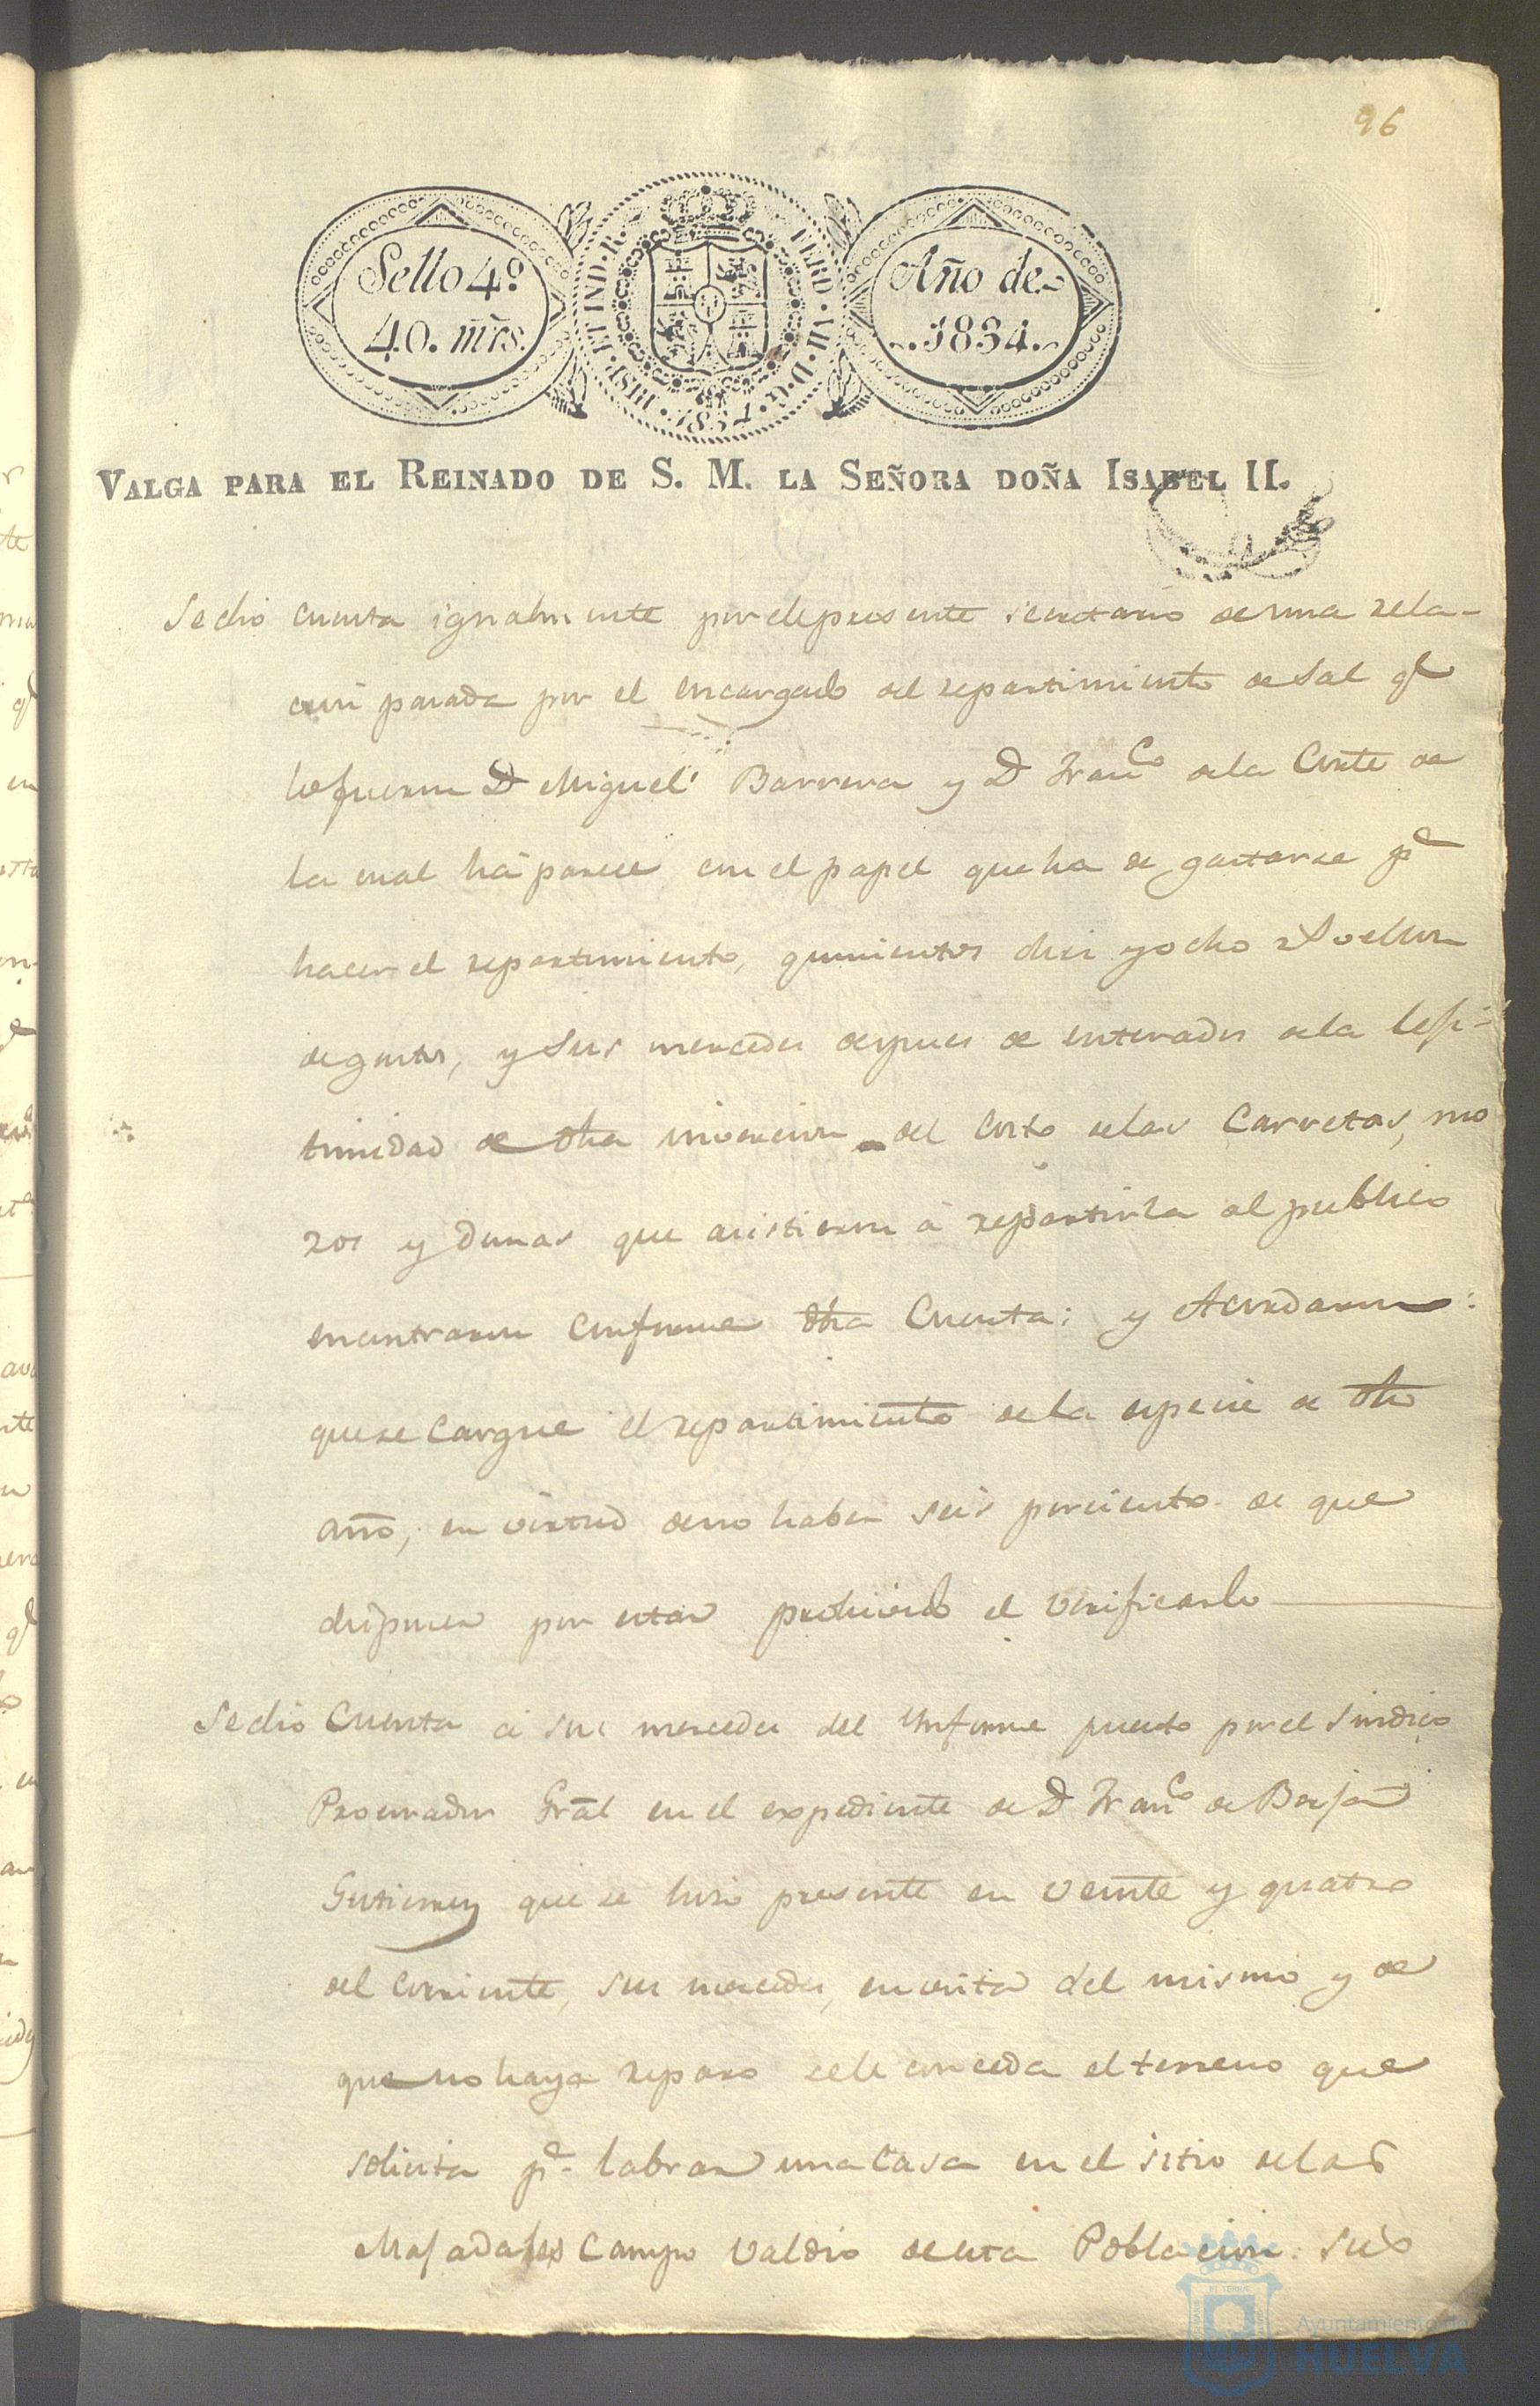 96
Sello 4º
40. mrs.
HISP. ET IND. R.
FERD. VII. D. G.
1834.
Año de
1834.
VALGA PARA EL REINADO DE S. M. LA SEÑORA DOÑA ISABEL II.
Se dio cuenta igualmente por el presente secretario de una rela-
cion pasada por el encargado del repartimiento de Sal qe
lo fueron Dn Miguel Barrera y Dn Franco de la Corte de
la cual há parece con el papel que ha de gastarse pa
hacer el repartimiento, quinientos diez y ocho rs vellon
de gastos, y Sus mercedes despues de enterados de la lefi-
timidad de dha inversion del costo de las Carretas, mo
zos y demas que asistieron á repartirla al publico
encontraron conforme dha Cuenta: y Acordaron:
que se Cargue el repartimiento de la especie de dho
año, en virtud de no haber seis porciento de que
disponer por estar prohivido el verificarlo
Se dio Cuenta á sus mercedes del Informe puesto por el Sindico
Procurador Gral en el expediente de Dn Franco de Borja
Gutierrez que se hizo presente en veinte y quatro
del corriente, sus mercedes, en vista del mismo y de
que no haya reparo se le conceda el terreno que
solicita pa labrar una Casa en el sitio de las
Campo Valdio de esta Poblacion: sus
Ayuntamiento de
HUELVA